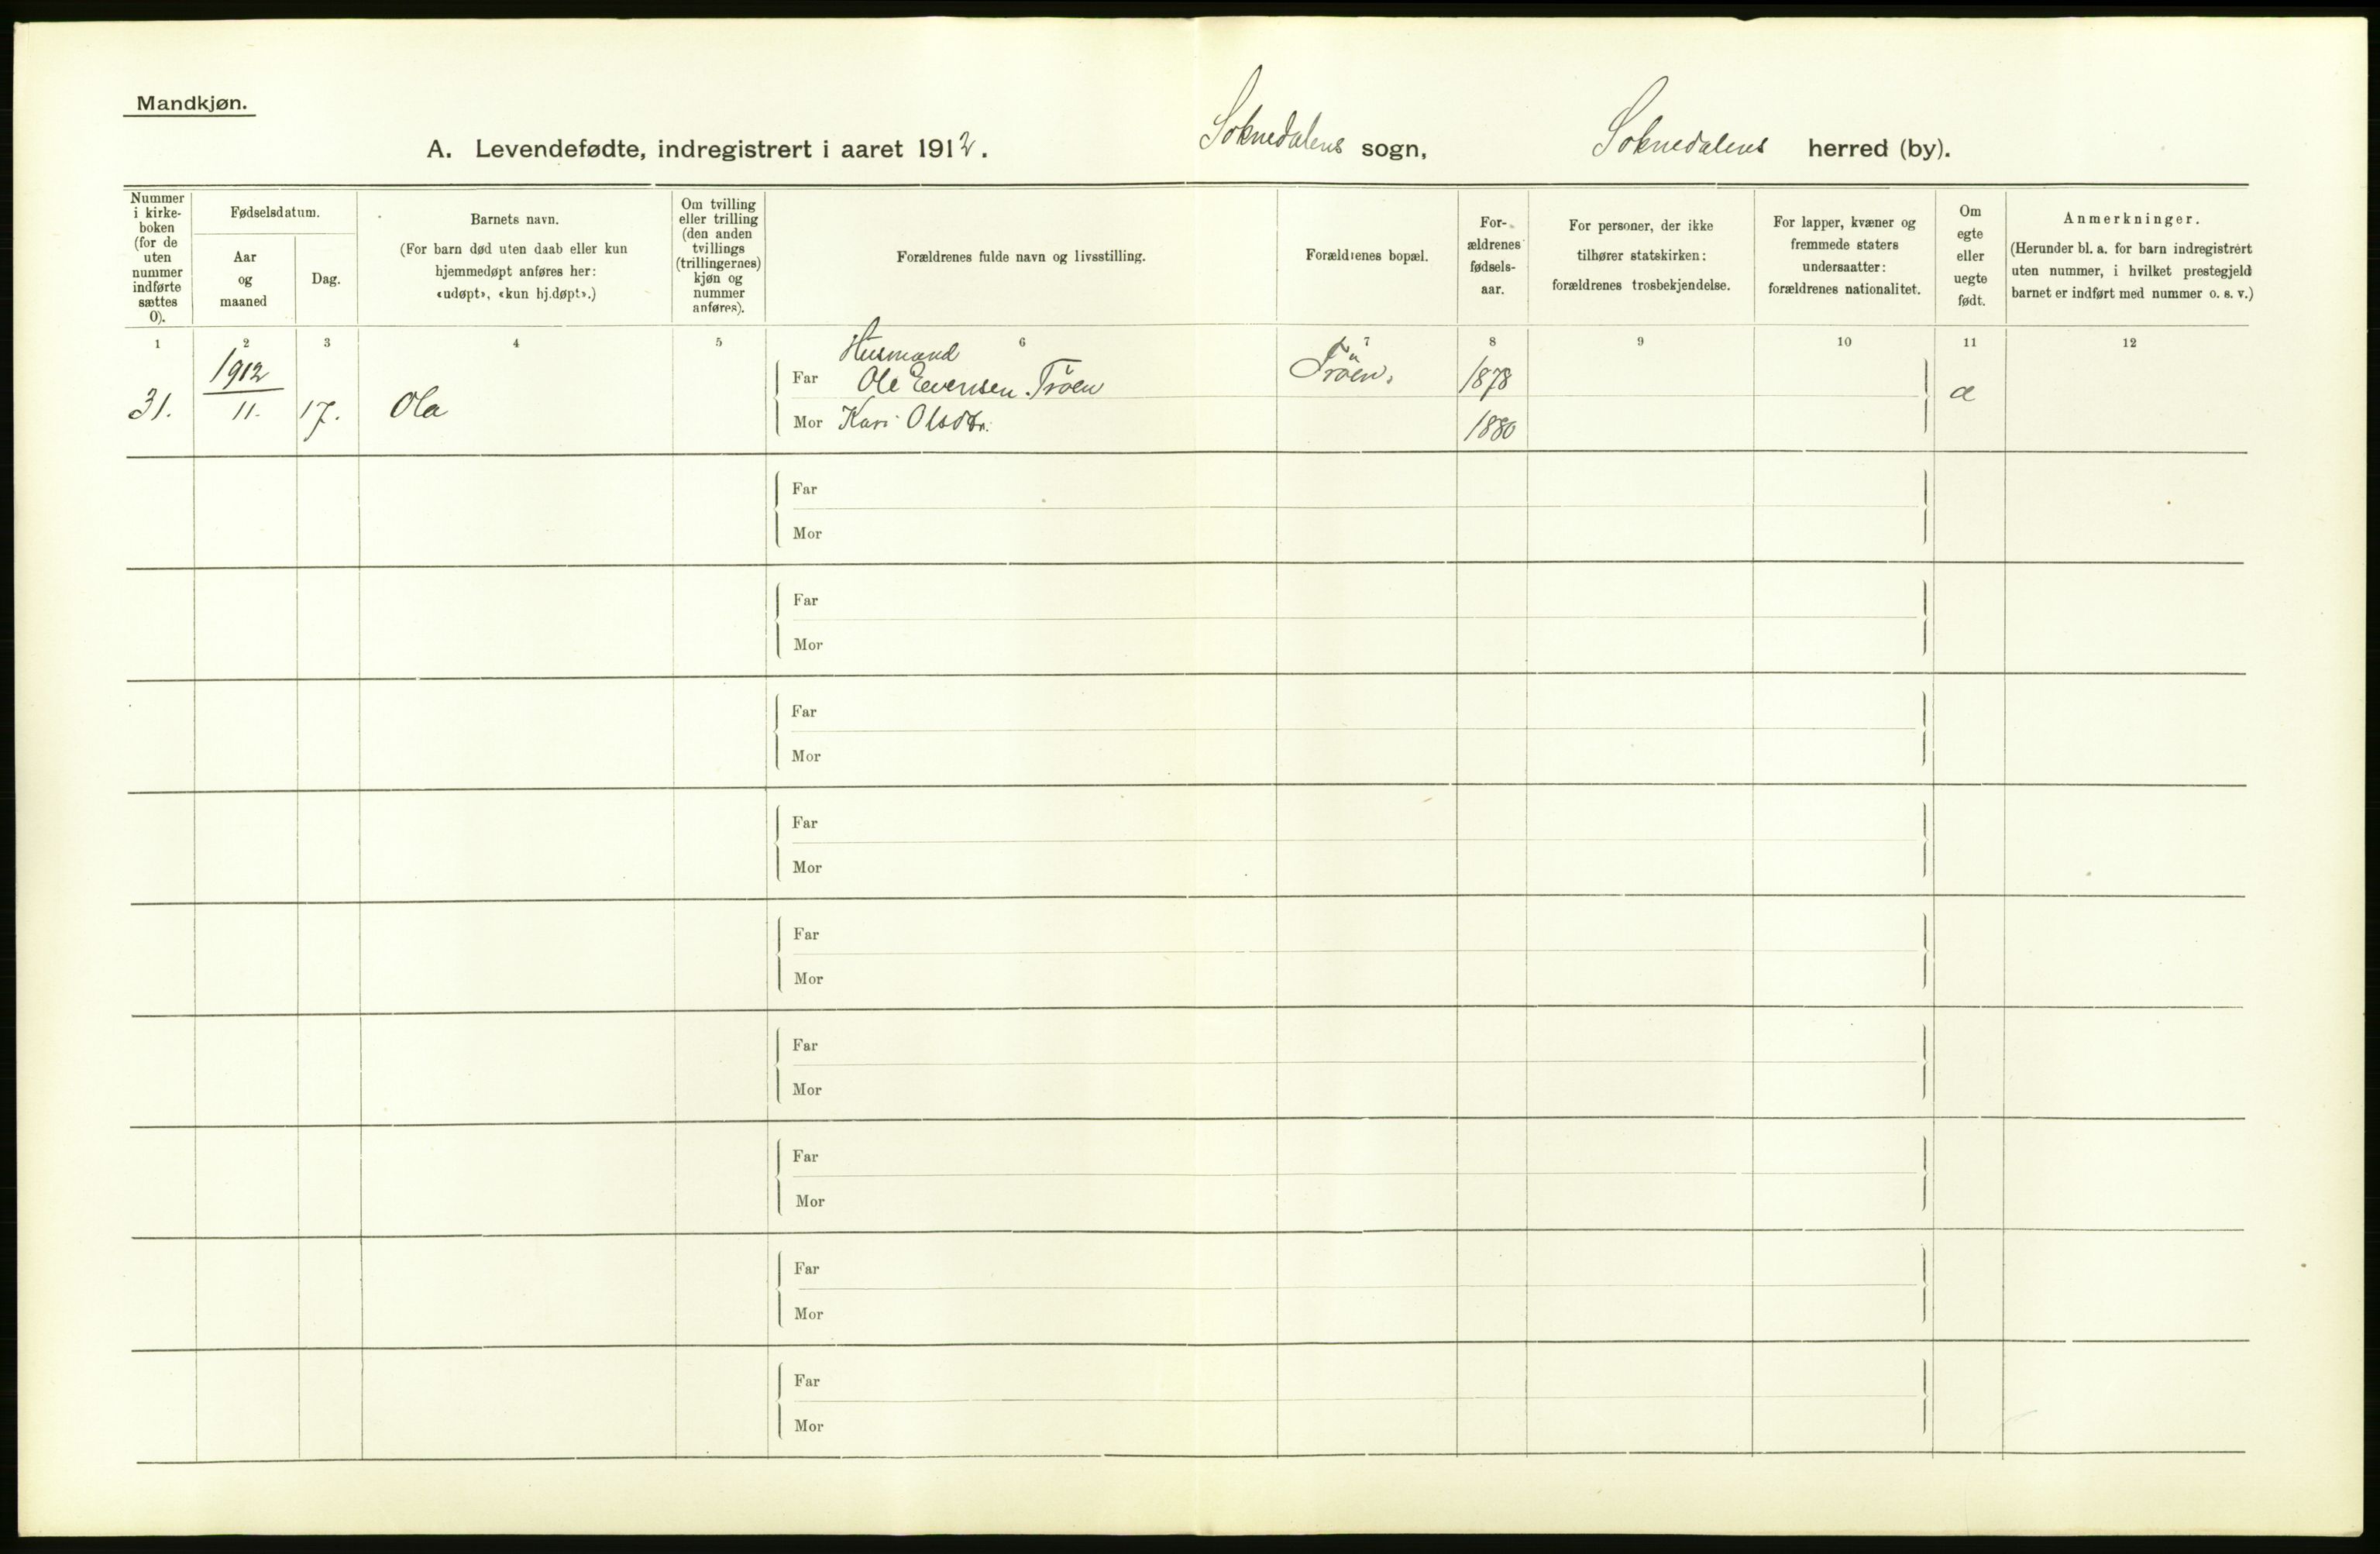 Mandkjøn.
A. Levendefødte, indregistrert i aaret 1912. Soknedalens sogn, Soknedalens herred (by).
Nummer i kirke-boken (for de uten nummer indførte sættes 0).
Fødselsdatum.
Aar og maaned
Dag.
Barnets navn.
(For barn død uten daab eller kun hjemmedøpt anføres her: «udøpt», «kun hj.døpt».)
Om tvilling eller trilling (den anden tvillings (trillingernes) kjøn og nummer anføres).
Forældrenes fulde navn og livsstilling.
Forældrenes bopæl.
For-ældrenes fødsels-aar.
For personer, der ikke tilhører statskirken: forældrenes trosbekjendelse.
For lapper, kvæner og fremmede staters undersaatter: forældrenes nationalitet.
Om egte eller uegte født.
Anmerkninger.
(Herunder bl. a. for barn indregistrert uten nummer, i hvilket prestegjeld barnet er indført med nummer o. s. v.)
1 2 3 4 5 6 7 8 9 10 11 12
Husmand
1912 Far Ole Evensen Tröen Tröen. 1878
31. 11. 17. Ola Mor Kari Olsdtr. 1880
Far
Mor
Far
Mor
Far
Mor
Far
Mor
Far
Mor
Far
Mor
Far
Mor
Far
Mor
Far
Mor